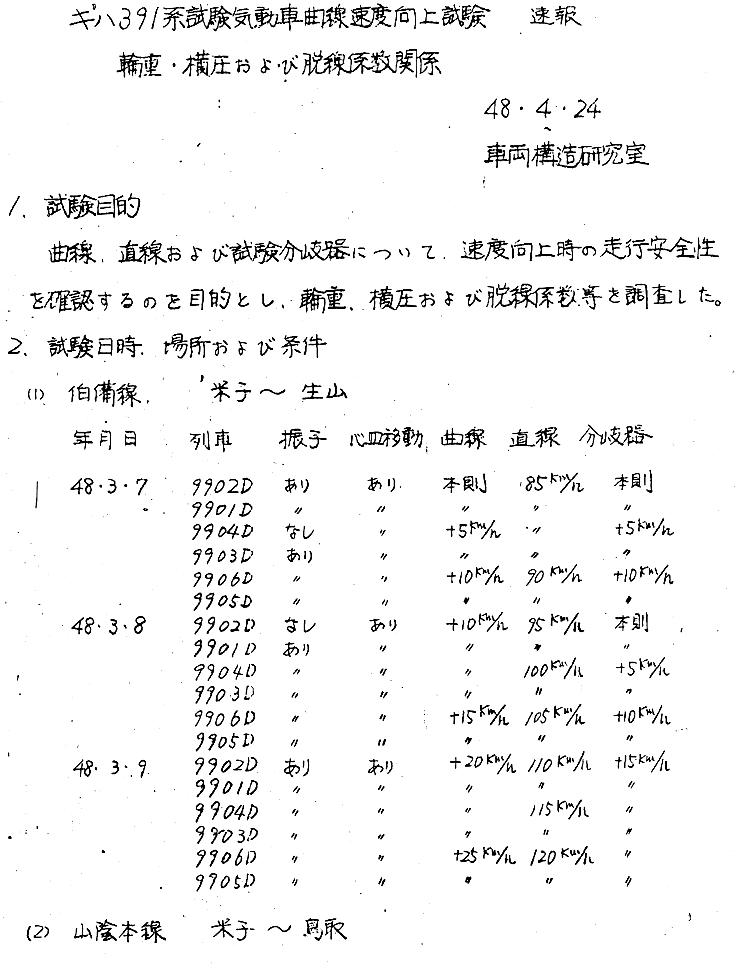 キハ391系試験気動車曲線速度向上試験 速報
輪重・横圧および脱線係数関係
48・4・24
車両構造研究室
1. 試験目的
曲線、直線および試験分岐器について、速度向上時の走行安全性
を確認するのを目的とし、輪重、横圧および脱線係数等を調査した。
2. 試験日時、場所および条件
(1) 伯備線、 米子〜生山
年月日 列車 振子 心皿移動 曲線 直線 分岐器
48・3・7 9902D あり あり 本則 85Km/h 本則
9901D 〃 〃 〃 〃 〃
9904D なし 〃 +5Km/h 〃 +5Km/h
9903D あり 〃 〃 〃 〃
9906D 〃 〃 +10Km/h 90Km/h +10Km/h
9905D 〃 〃 〃 〃 〃
48・3・8 9902D なし あり +10Km/h 95Km/h 本則
9901D あり 〃 〃 〃 〃
9904D 〃 〃 〃 100Km/h +5Km/h
9903D 〃 〃 〃 〃 〃
9906D 〃 〃 +15Km/h 105Km/h +10Km/h
9905D 〃 〃 〃 〃 〃
48・3・9 9902D あり あり +20Km/h 110Km/h +15Km/h
9901D 〃 〃 〃 〃 〃
9904D 〃 〃 〃 115Km/h 〃
9903D 〃 〃 〃 〃 〃
9906D 〃 〃 +25Km/h 120Km/h 〃
9905D 〃 〃 〃 〃 〃
(2) 山陰本線 米子〜鳥取